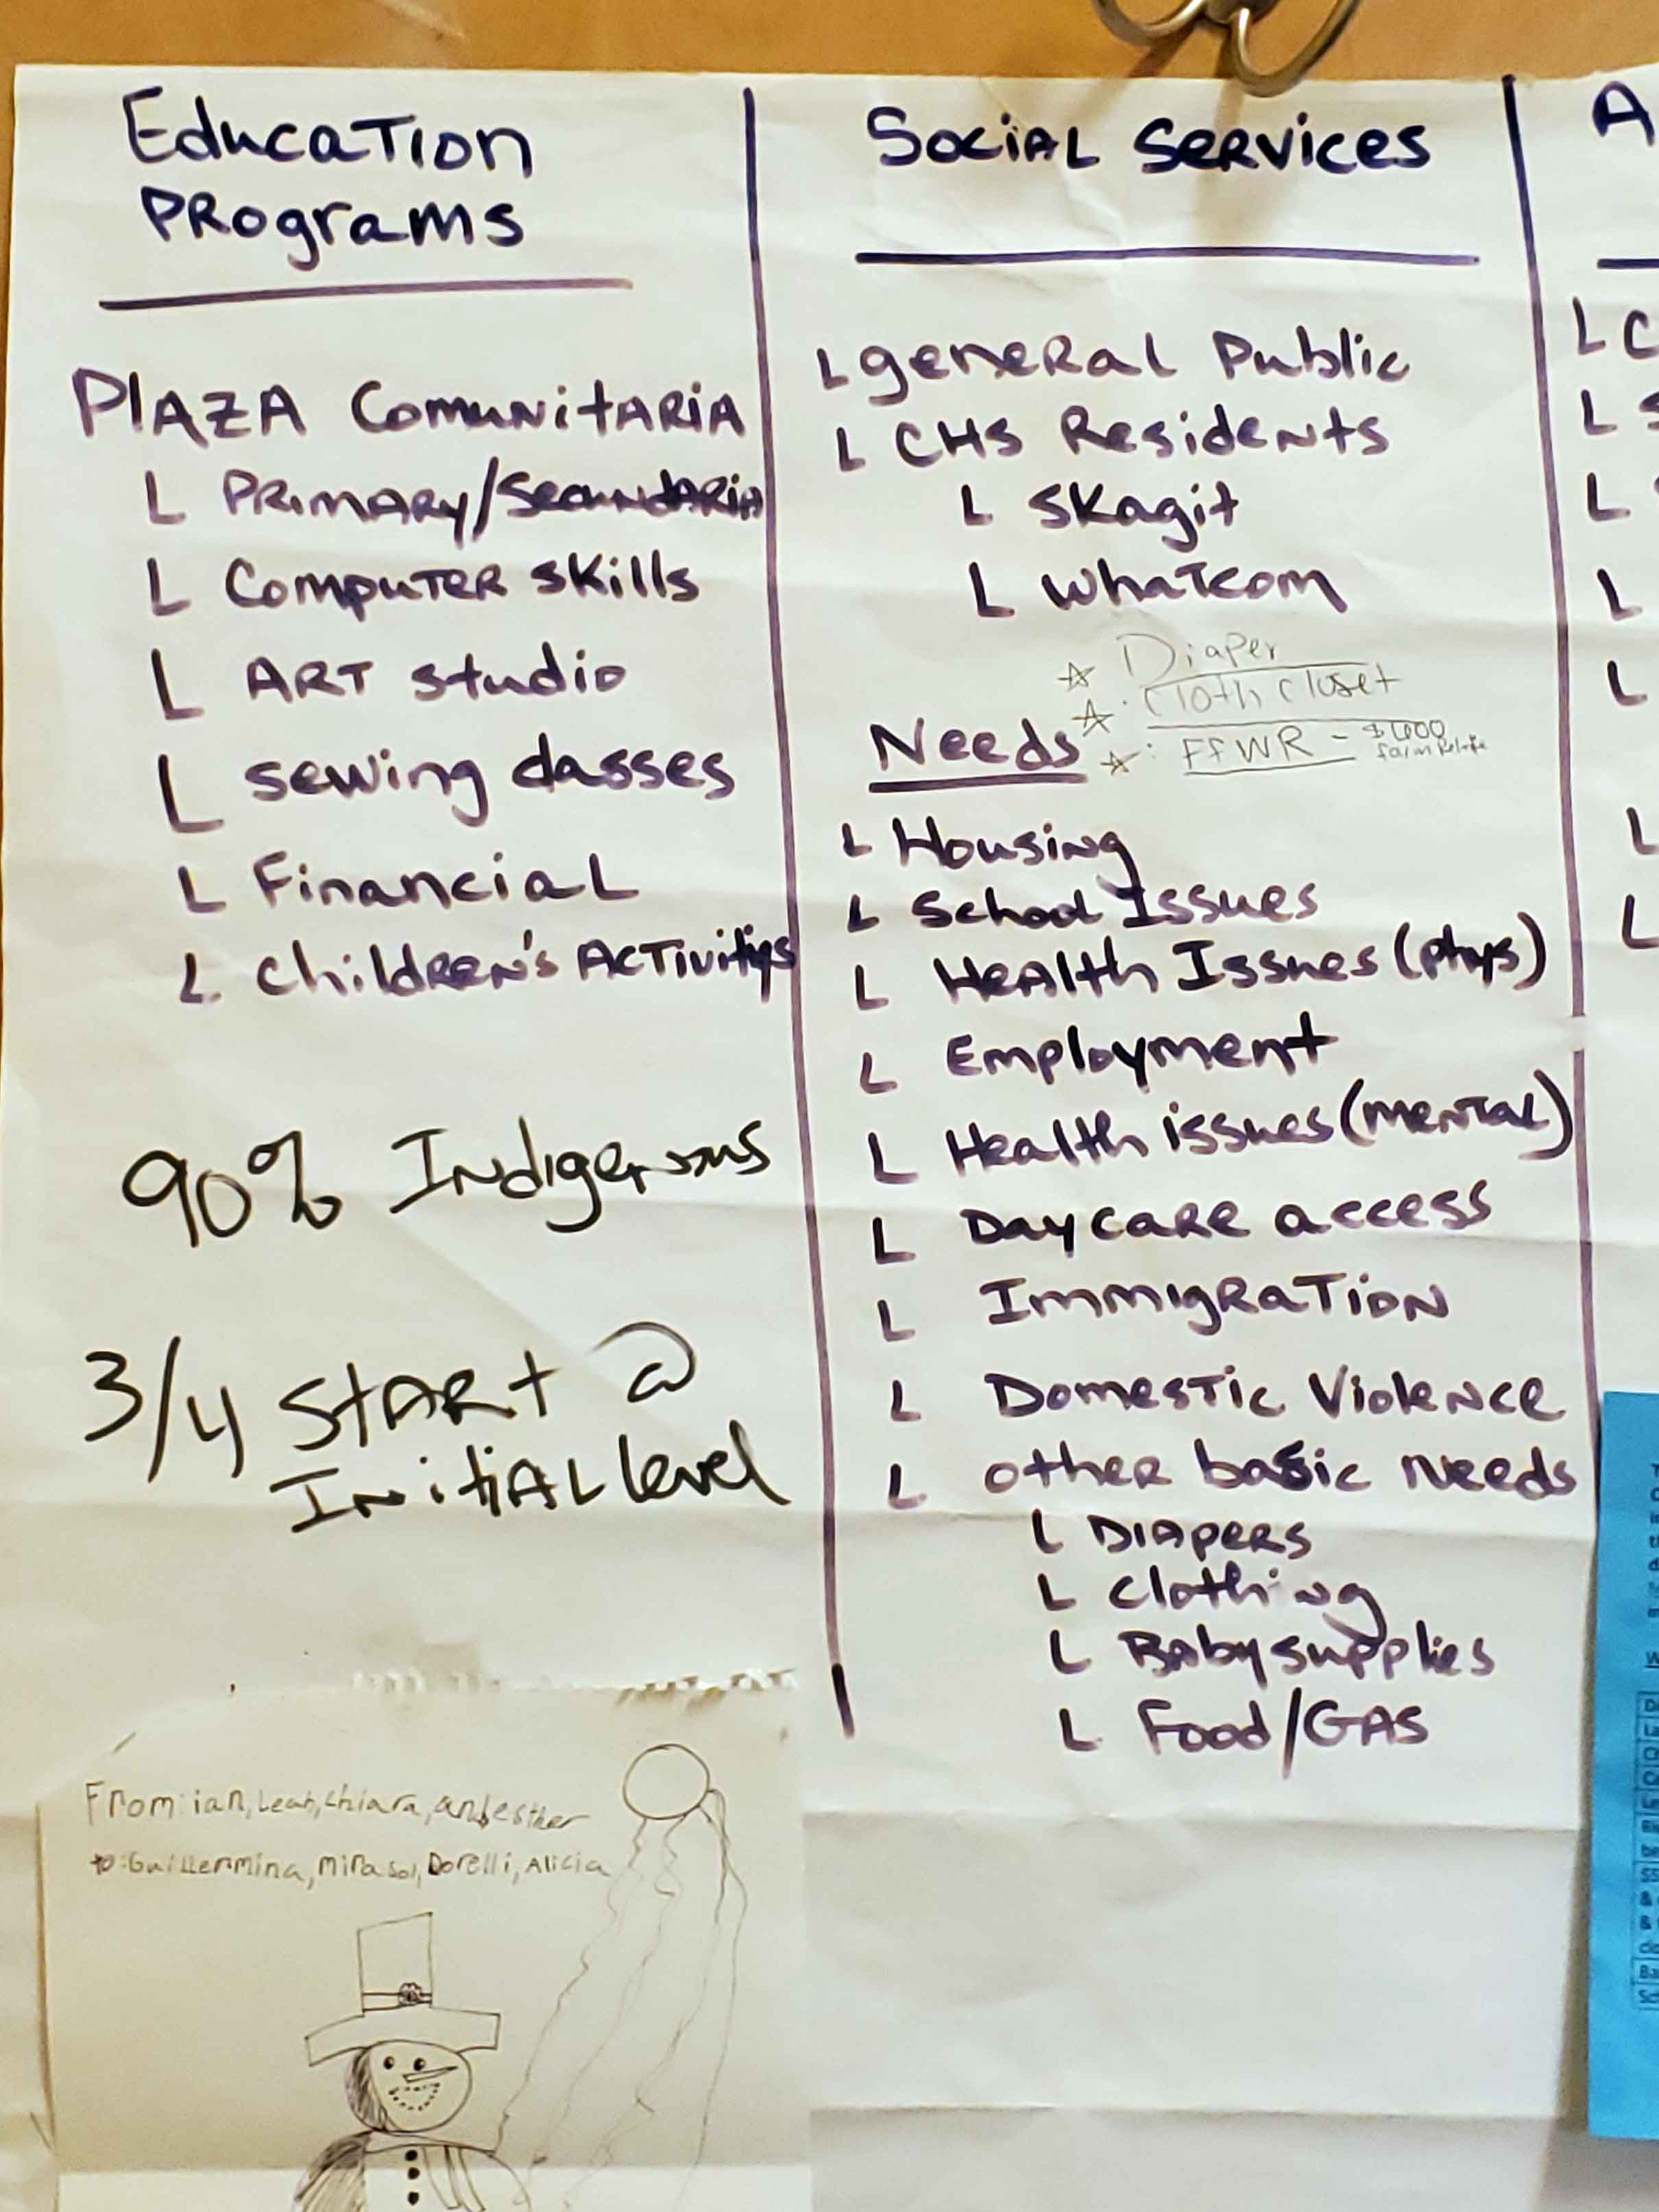 Education
Programs
Plaza Comunitaria
L Primary/Secundaria
L Computer skills
L Art studio
L sewing classes
L Financial
L Children's Activities
90% Indigenous
3/4 Start @
Initial level
From: ian, Leah, Chiara, and esther
to: Guillermina, Mirasol, Dorelli, Alicia
Social Services
L general Public
L CHS Residents
L Skagit
L Whatcom
☆ Diaper
☆ Cloth closet
☆ FFWR -
farm
Needs
L Housing
L School Issues
L Health Issues (phys)
L Employment
L Health issues (mental)
L Daycare access
L Immigration
L Domestic Violence
L other basic needs
L Diapers
L Clothing
L Baby supplies
L Food/GAS
A
L C
L S
L
L
L
L
L